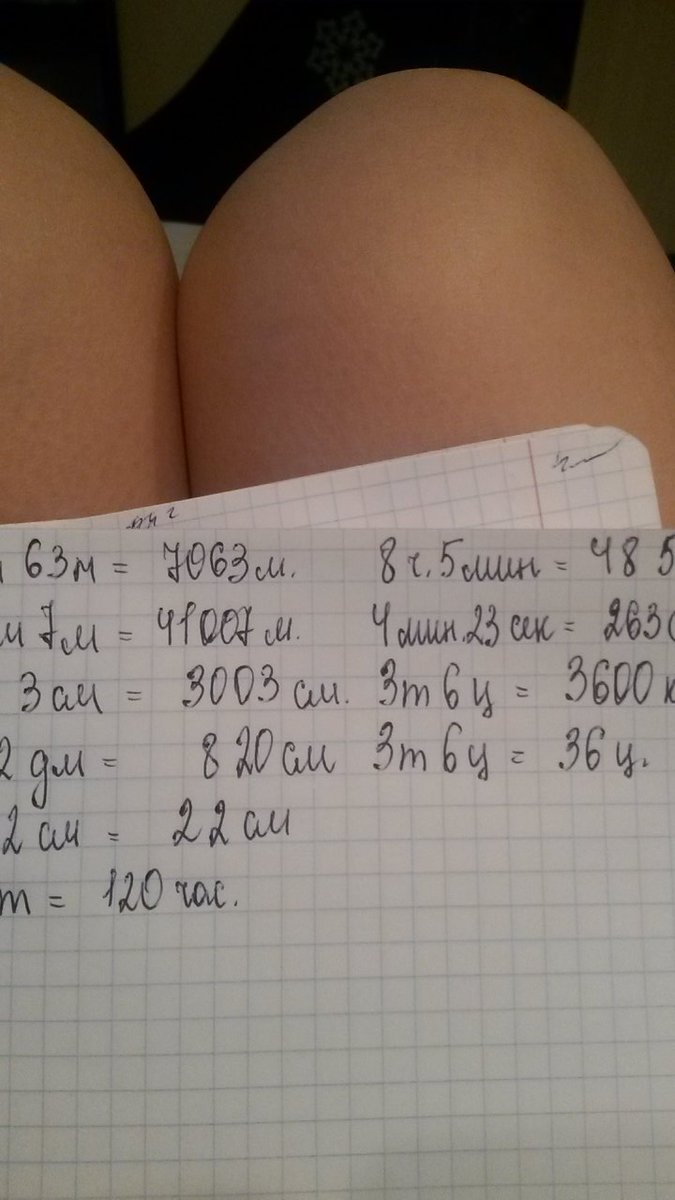 63м = 7063м. 8 ч. 5 мин = 485
м 7м = 41007 м. 4 мин. 23 сек = 263
3 см = 3003 см. 3 т 6 ц = 3600 к
2 дм = 820 см 3 т 6 ц = 36 ц.
2 см = 22 см
т = 120 час.